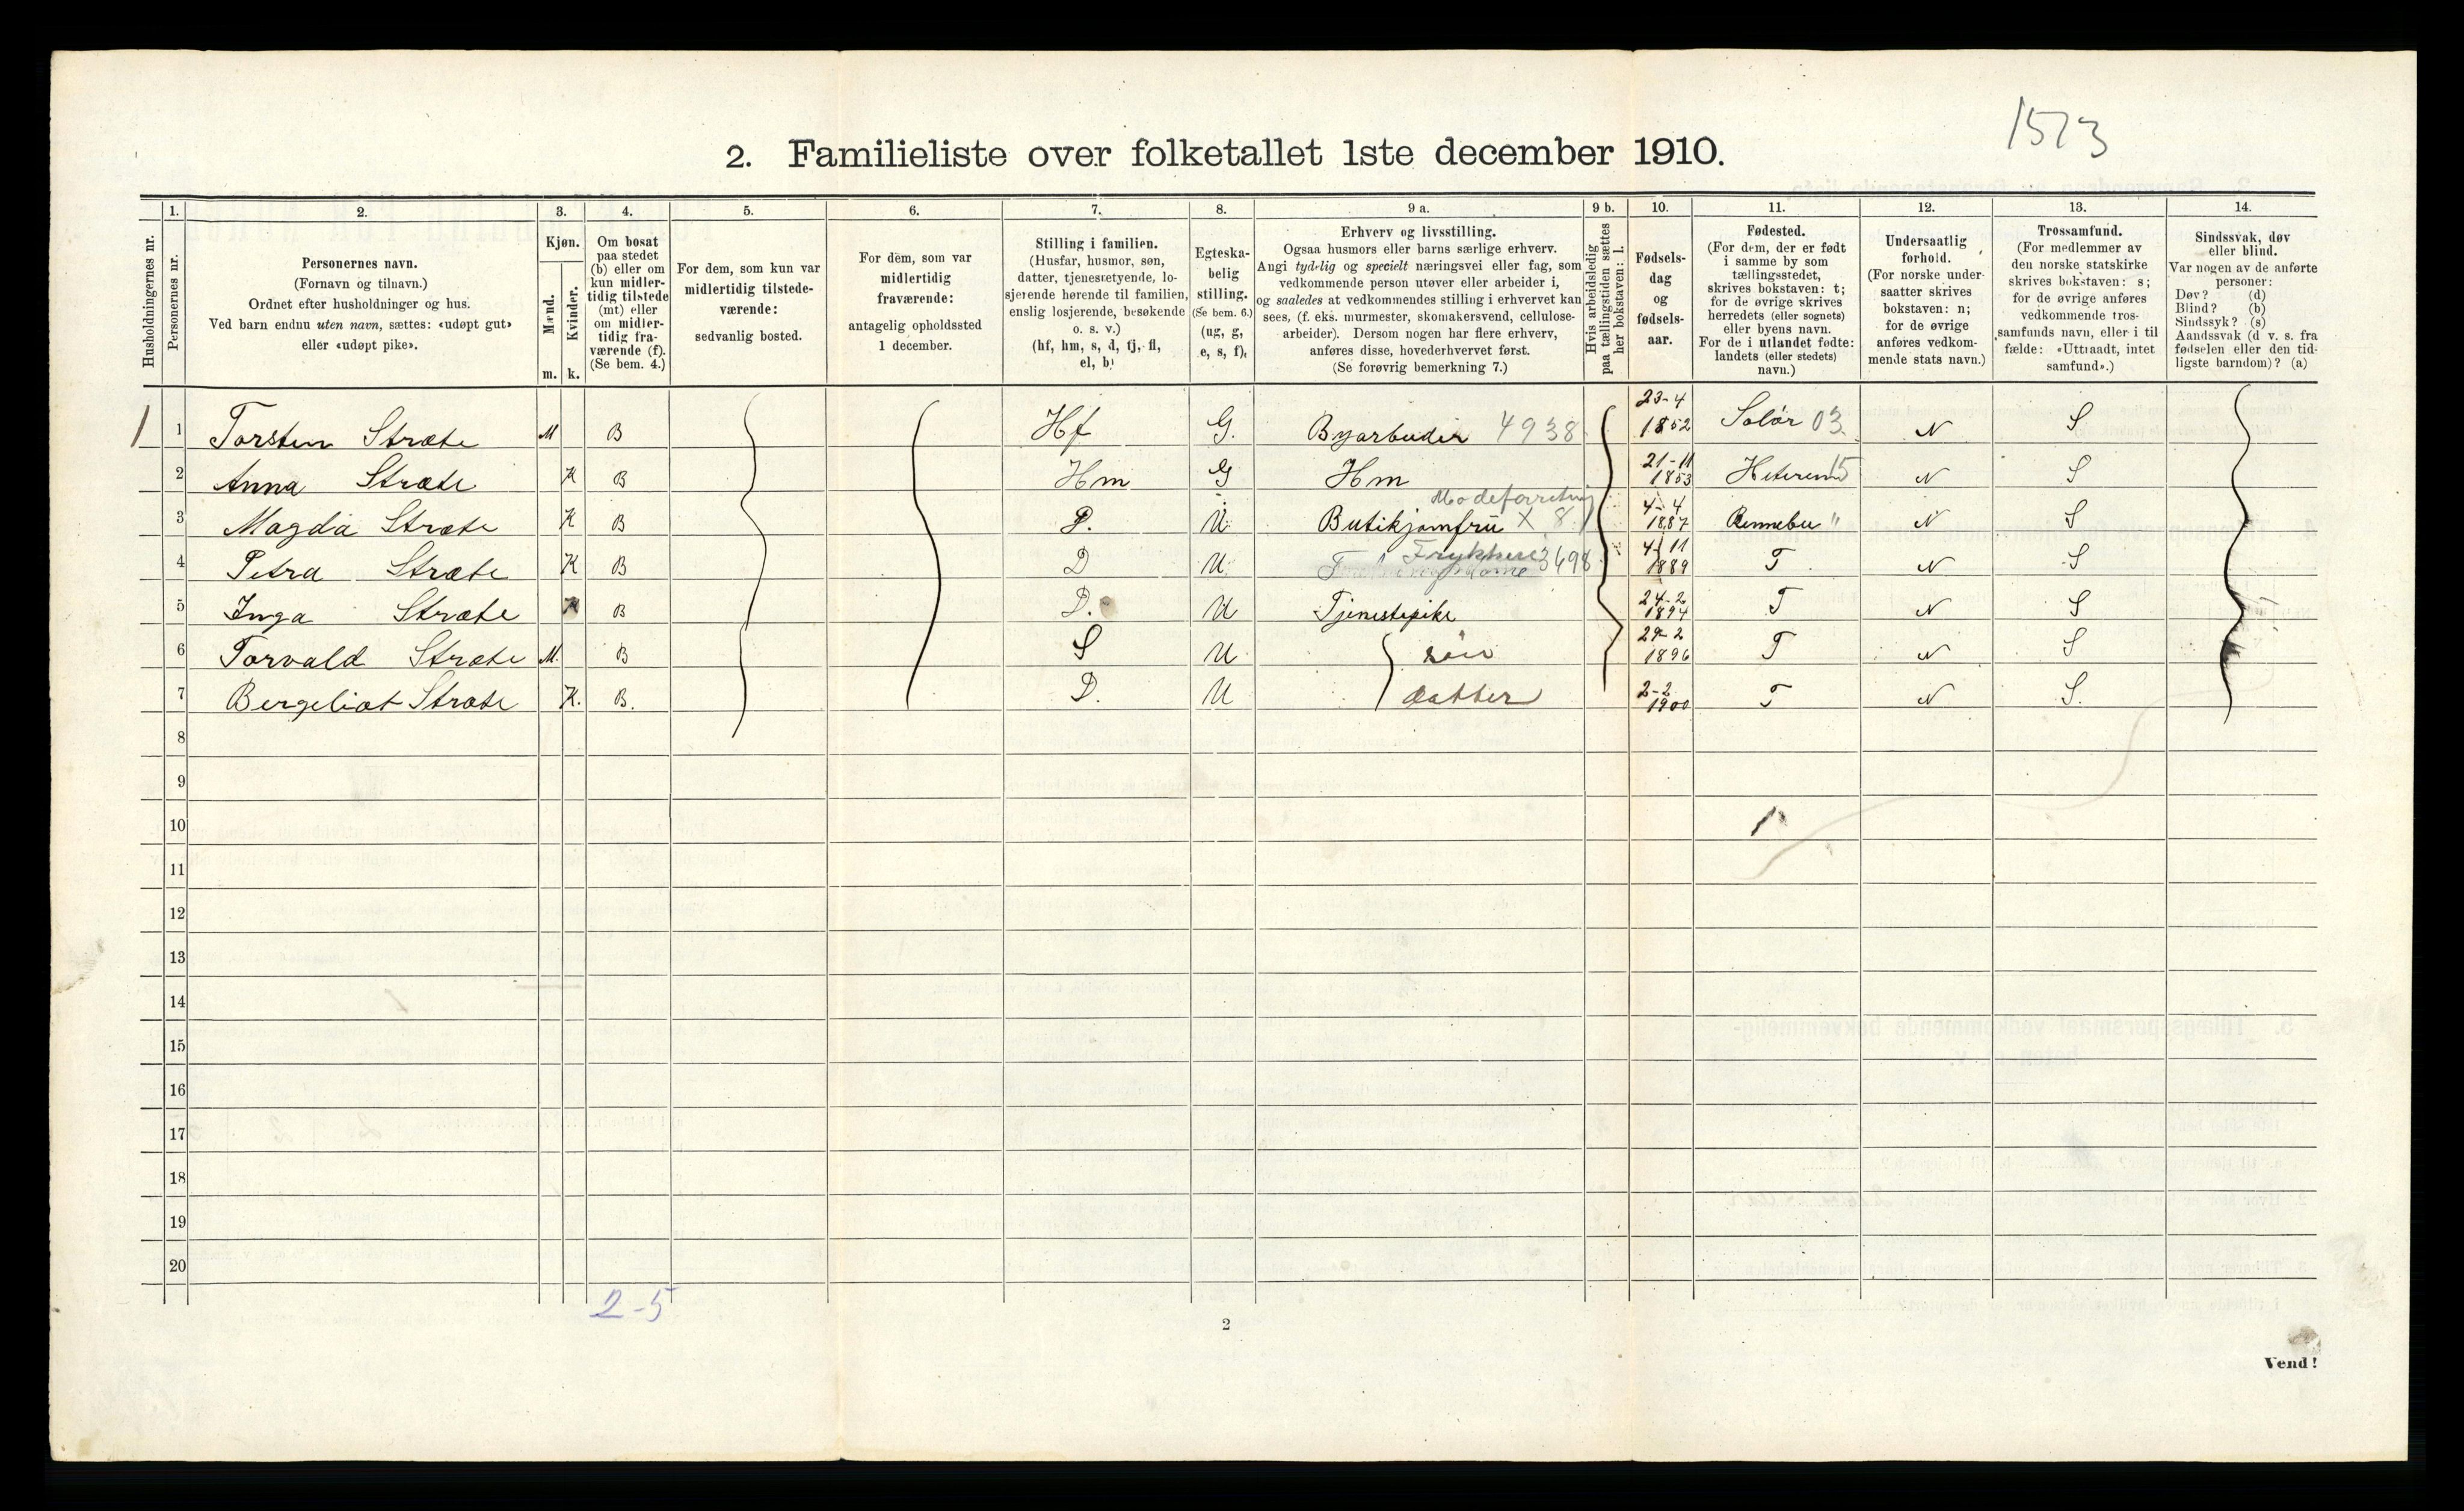 1573
2. Familieliste over folketallet 1ste december 1910.
Husholdningernes nr.
1.
Personernes nr.
2.
Personernes navn.
(Fornavn og tilnavn.)
Ordnet efter husholdninger og hus.
Ved barn endnu uten navn, sættes: «udøpt gut»
eller «udøpt pike».
3.
Kjøn.
Mænd.
Kvinder.
m. k.
4.
Om bosat
paa stedet
(b) eller om
kun midler-
tidig tilstede
(mt) eller
om midler-
tidig fra-
værende (f).
(Se bem. 4.)
5.
For dem, som kun var
midlertidig tilstede-
værende:
sedvanlig bosted.
6.
For dem, som var
midlertidig
fraværende:
antagelig opholdssted
1 december.
7.
Stilling i familien.
(Husfar, husmor, søn,
datter, tjenestetyende, lo-
sjerende hørende til familien,
enslig losjerende, besøkende
o. s. v.)
(hf, hm, s, d, tj, fl,
el, b)
8.
Egteska-
belig
stilling.
(Se bem. 6.)
(ug, g,
e, s, f),
9 a.
Erhverv og livsstilling.
Ogsaa husmors eller barns særlige erhverv.
Angi tydelig og specielt næringsvei eller fag, som
vedkommende person utøver eller arbeider i,
og saaledes at vedkommendes stilling i erhvervet kan
sees, (f. eks. murmester, skomakersvend, cellulose-
arbeider). Dersom nogen har flere erhverv,
anføres disse, hovederhvervet først.
(Se forøvrig bemerkning 7.)
9 b.
Hvis arbeidsledig
paa tællingstiden sættes
her bokstaven: l.
10.
Fødsels-
dag
og
fødsels-
aar.
11.
Fødested.
(For dem, der er født
i samme by som
tællingsstedet,
skrives bokstaven: t;
for de øvrige skrives
herredets (eller sognets)
eller byens navn.
For de i utlandet fødte:
landets (eller stedets)
navn.)
12.
Undersaatlig
forhold.
(For norske under-
saatter skrives
bokstaven: n;
for de øvrige
anføres vedkom-
mende stats navn.)
13.
Trossamfund.
(For medlemmer av
den norske statskirke
skrives bokstaven: s;
for de øvrige anføres
vedkommende tros-
samfunds navn, eller i til
fælde: «Uttraadt, intet
samfund».)
14.
Sindssvak, døv
eller blind.
Var nogen av de anførte
personer:
Døv? (d)
Blind? (b)
Sindssyk? (s)
Aandssvak (d v. s. fra
fødselen eller den tid-
ligste barndom)? (a)
1 1 Torsten Stræte M B Hf G. Byarbeider 4938 23-4 1852 Solør 03 N S
2 Anna Stræte K B Hm G Hm 21-11 1853 15 N S
Modeforretning
3 Magda Stræte K B D. U Butikjomfru X 8 4-4 1887 Rennebu " N S
4 Petra Stræte K B D U 3498 4-11 1889 T N S
5 Inga Stræte K B D. U Tjenestepike 24-2 1894 T N S
6 Torvald Stræte M. B S U søn 29-2 1896 T N S
7 Bergeliot Stræte K. B. D. U datter 2-2 1900 T N S.
8
9
10
11
12
13
14
15
16
17
18
19
20
2-5
2
Vend!